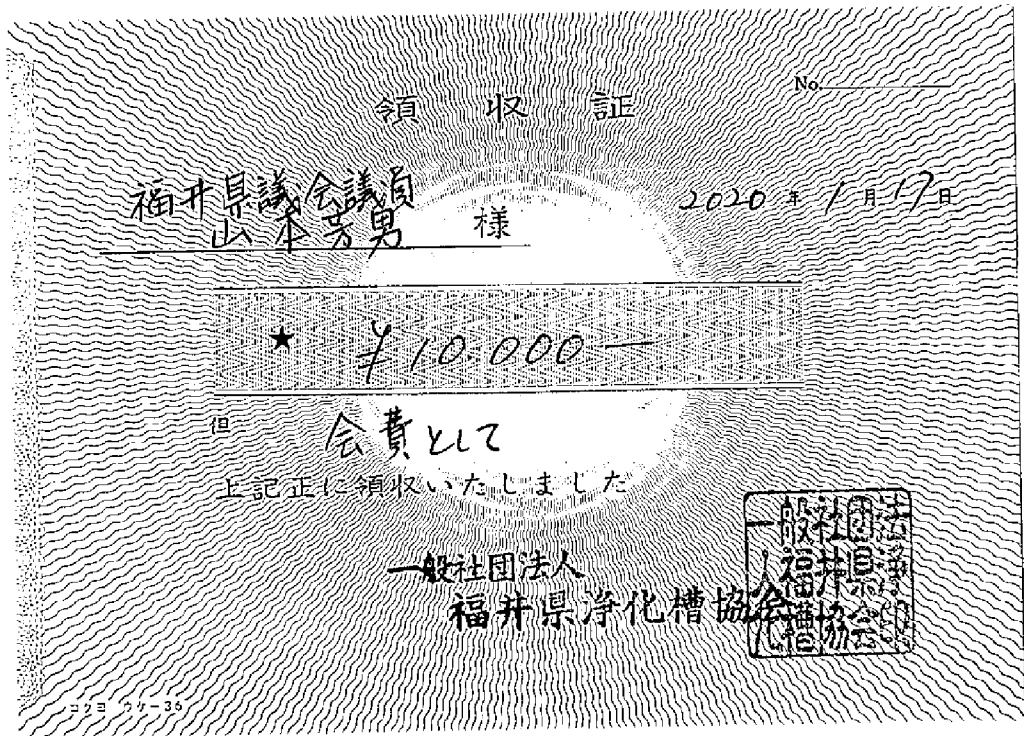 No.
領収証
福井県議会議員
山本芳男 様
2020年1月17日
★ ¥10.000—
但 会費として
上記正に領収いたしました
一般社団法人
福井県浄化槽協会
コクヨ ウケ-36